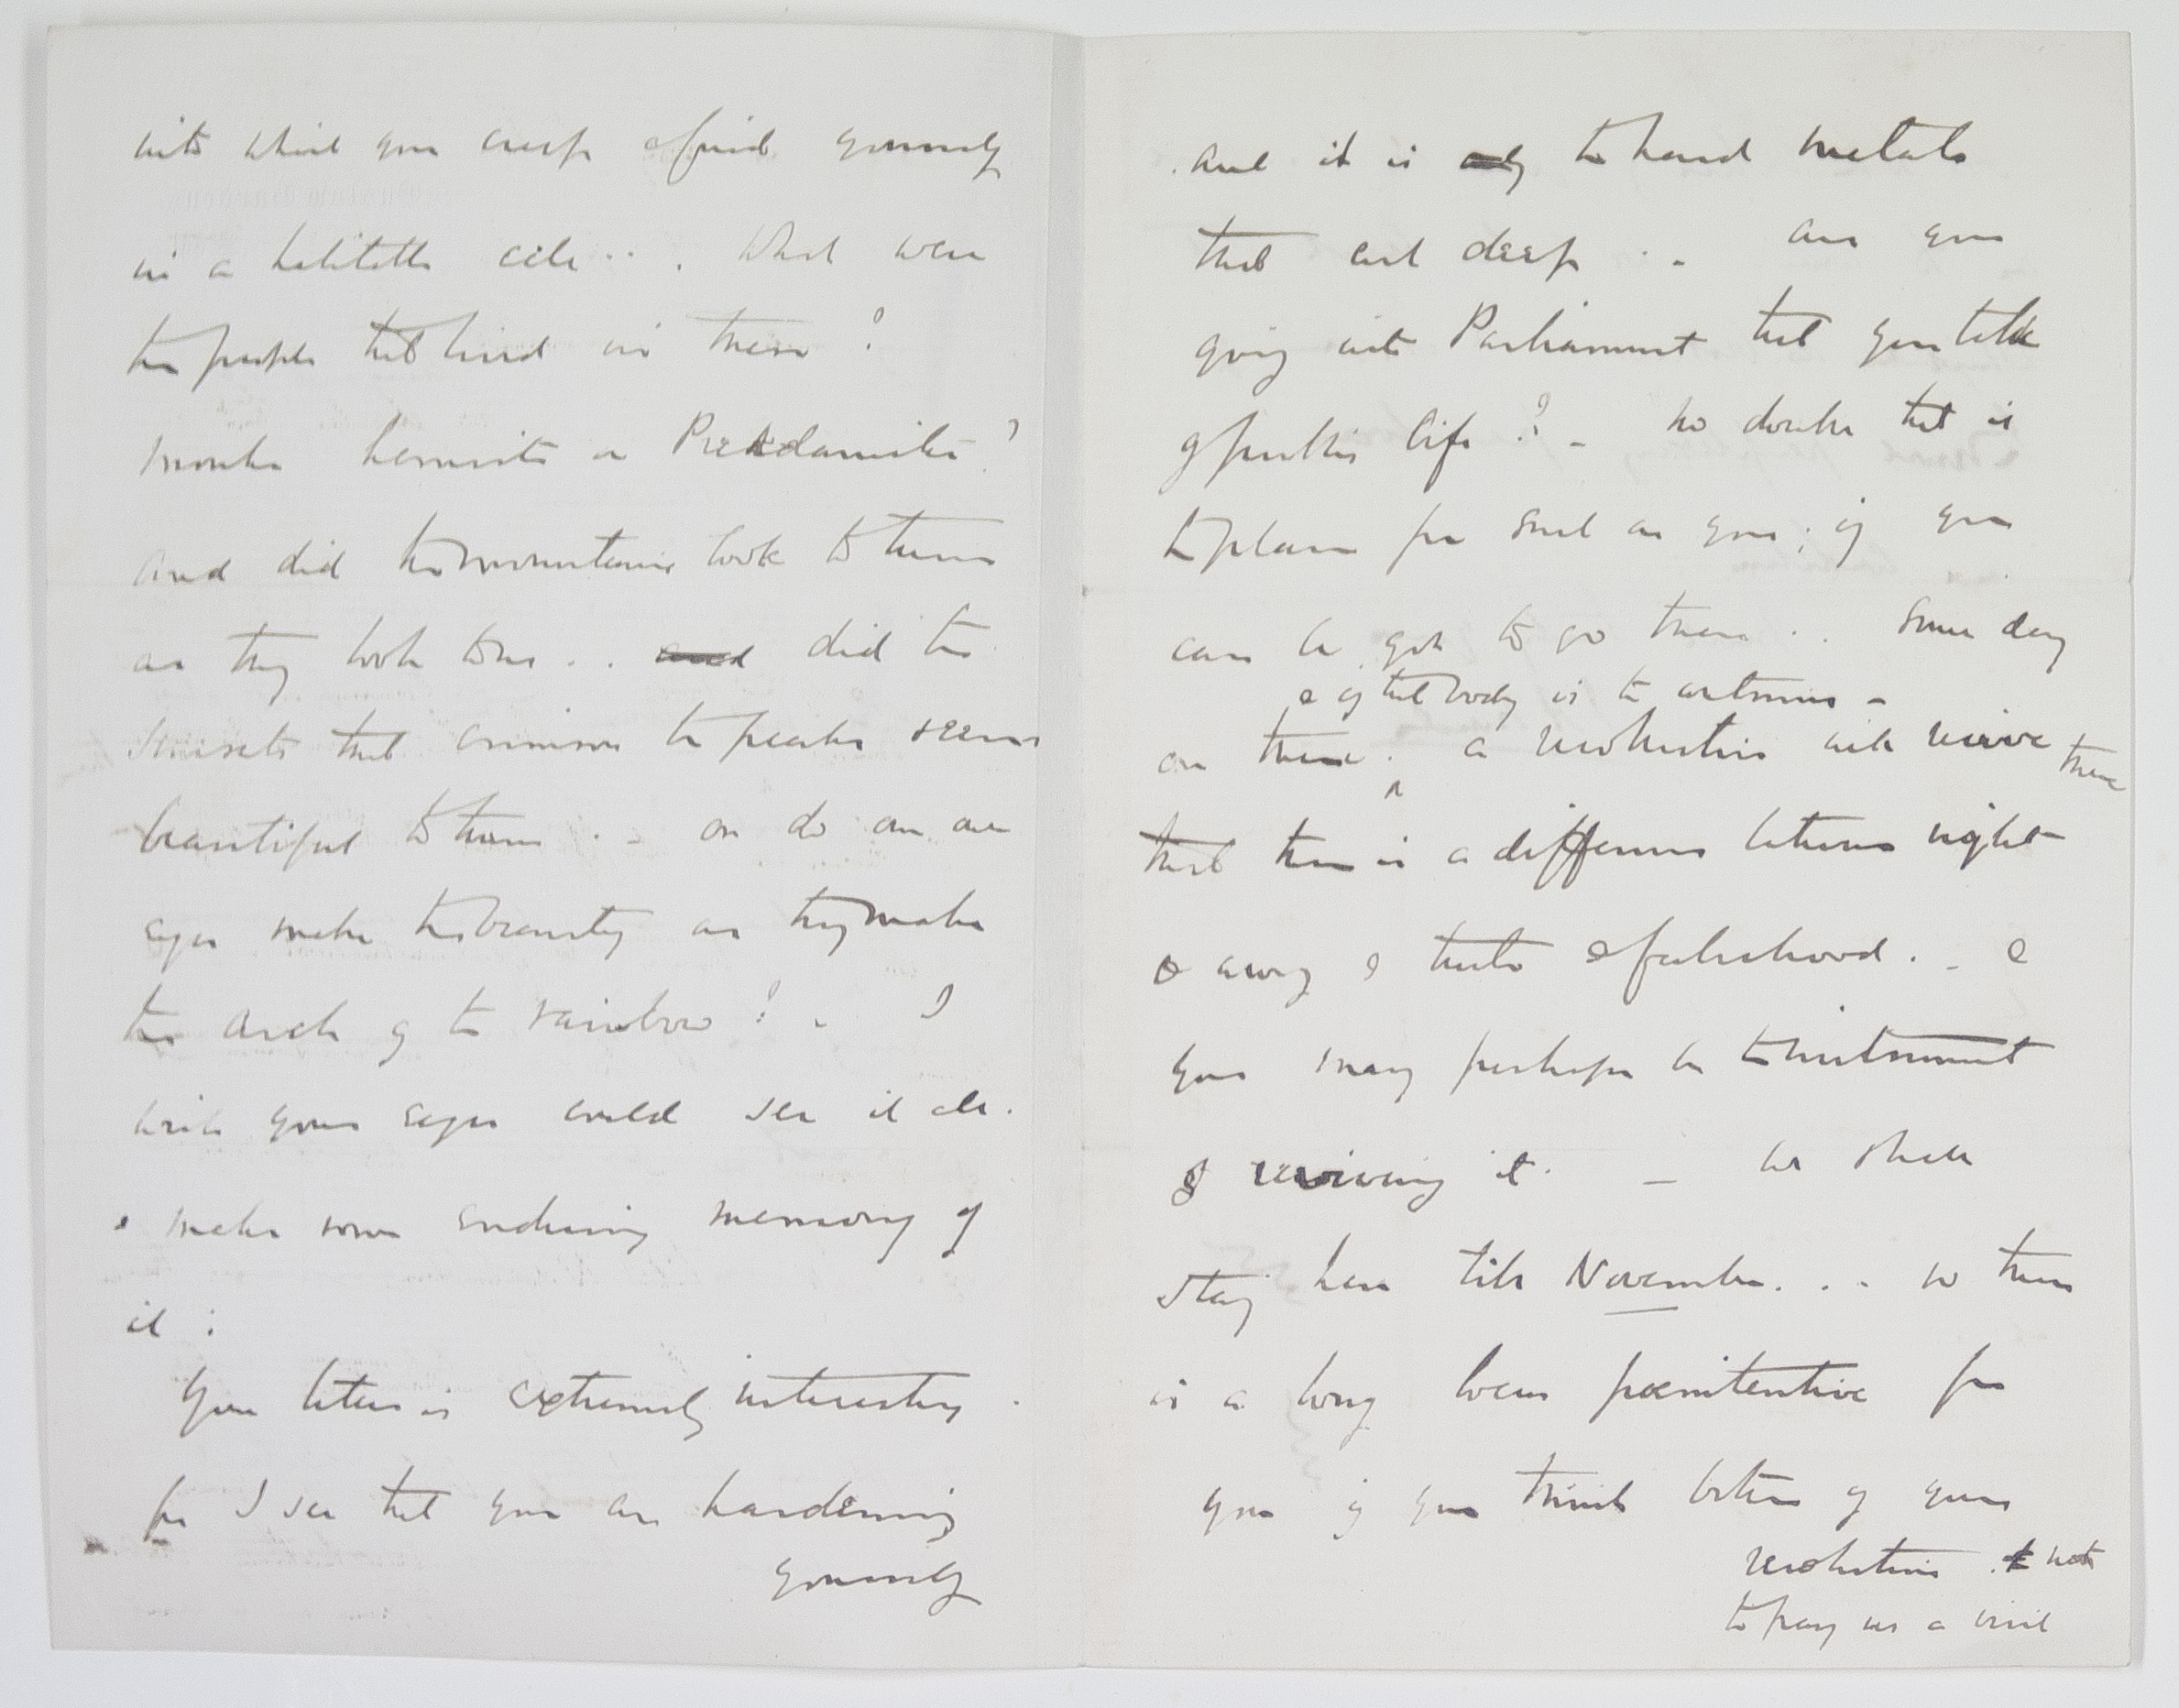 into which you creep & find yourself
in a habitable cell . . . What were
the people that lived in them ?
monks hermits or PreAdamites ?
And did the mountains look to them
as they look to us . . and did the
sunsets that crimson the peaks seem
beautiful to them . . or do our own
eyes make the beauty as they make
the arch of the rainbow ? . I
wish your eyes could see it all .
& make some enduring memory of
it :
Your letter is extremely interesting .
for I see that you are hardening
yourself
and it is only the hard metals
that cut deep . . are you
going into Parliament that you talk
of public life ? _ no doubt that is
the place for such as you ; if you
can be got to go there . . Some day
& if that body is the
or there . a revolution will revive there
that there is a difference between right
& wrong & truth & falsehood . . &
you may perhaps be the instrument
of reviving it . _ We shall
stay here till November . . . so there
is a long locus poenitentiae for
you if you think better of your
resolution not
to pay us a visit